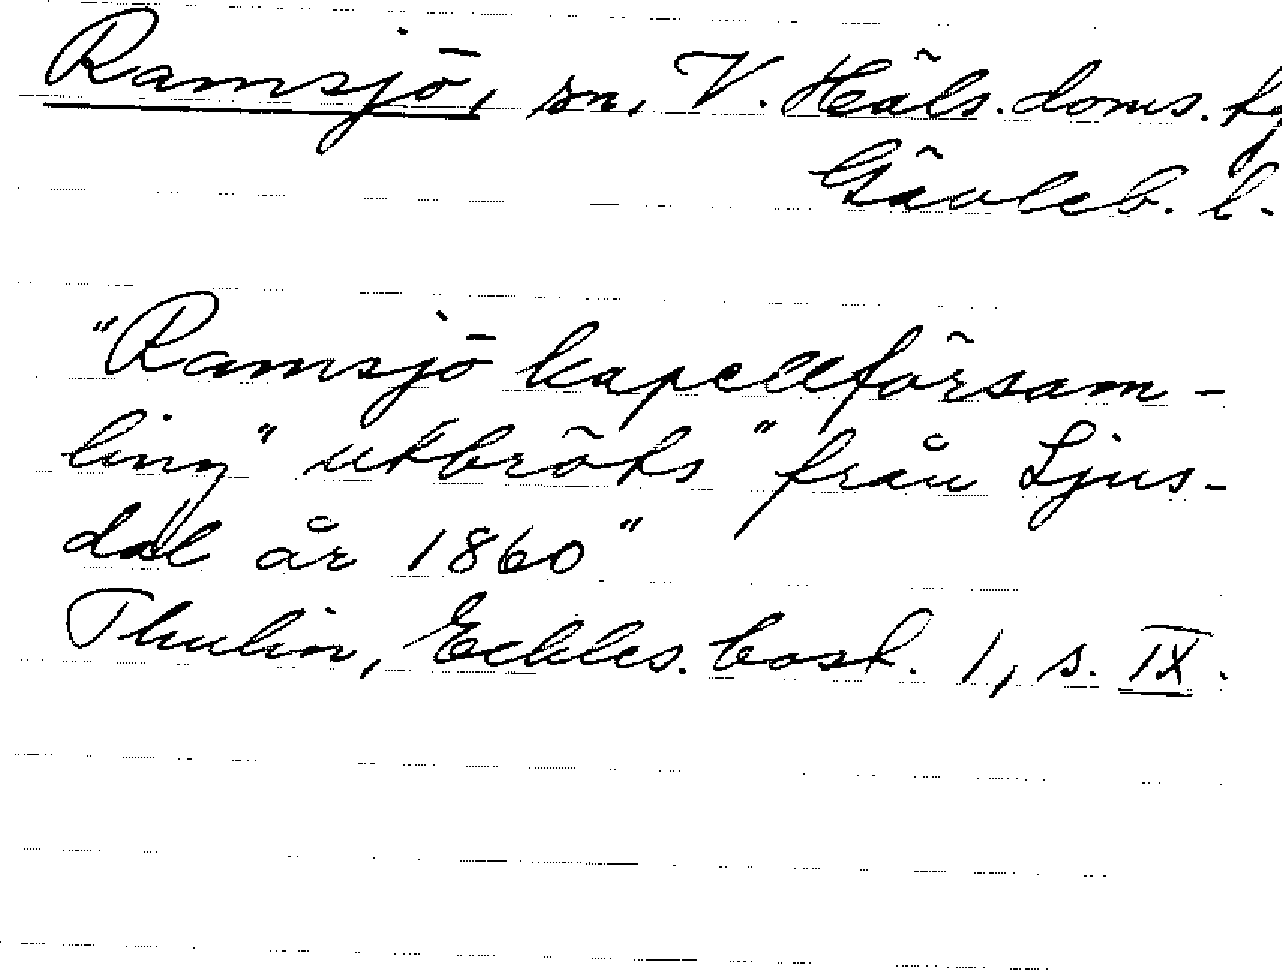 Ramsjö, sn, V. Häls. doms.
Gävleb. l.
"Ramsjö kapellförsam-
ling" utbröts "från Ljus-
dal år 1860"
Thulin, Eckles. bosk. 1, s. IX.